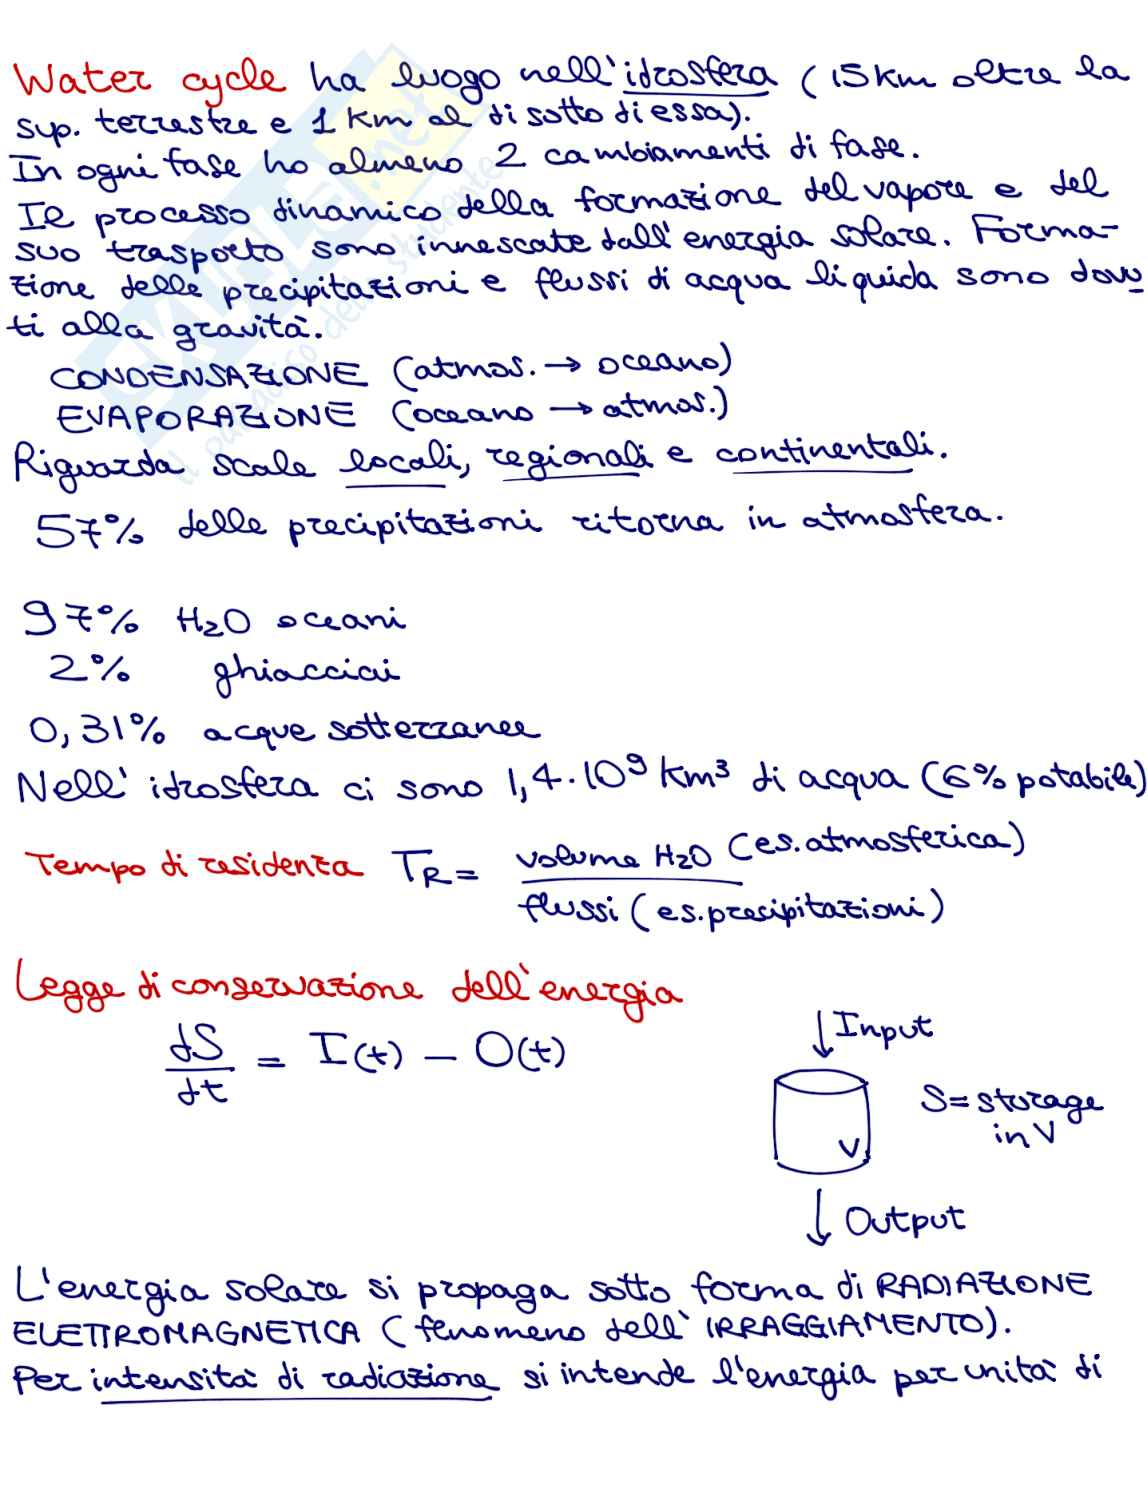 Water cycle ha luogo nell'idrosfera (15 Km oltre la
sup. terrestre e 1 Km al di sotto di essa).
In ogni fase ho almeno 2 cambiamenti di fase.
Il processo dinamico della formazione del vapore e del
suo trasporto sono innescate dall'energia solare. Forma-
zione delle precipitazioni e flussi di acqua liquida sono dovu
ti alla gravità.
CONDENSAZIONE (atmos. → oceano)
EVAPORAZIONE (oceano → atmos.)
Riguarda scale locali, regionali e continentali.
57% delle precipitazioni ritorna in atmosfera.
97% H₂O oceani
2% ghiacciai
0,31% acque sotterranee
Nell'idrosfera ci sono 1,4·10⁹ Km³ di acqua (6% potabile)
Tempo di residenza T_R = volume H₂O (es. atmosferica)
flussi (es. precipitazioni)
Legge di conservazione dell'energia
dS/dt = I(t) - O(t)
↓ Input
S = storage
in V
V
↓ Output
L'energia solare si propaga sotto forma di RADIAZIONE
ELETTROMAGNETICA (fenomeno dell'IRRAGGIAMENTO).
Per intensità di radiazione si intende l'energia per unità di